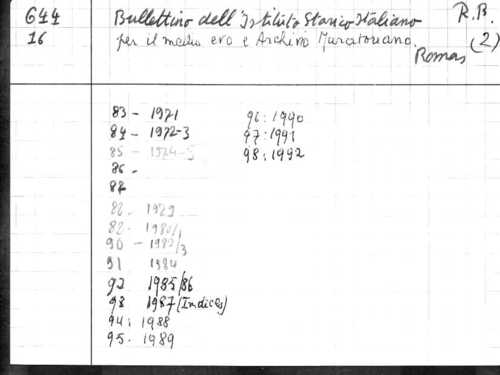 644
16
Bullettino dell'Istituto Storico Italiano
per il medio evo e Archivio Muratoriano.
Roma
R.B.
(2)
83 - 1971
84 - 1972-3
85 - 1974-5
86 -
87
88. 1979
89. 1980/1
90 - 1982/3
91 1984
92 1985/86
93 1987 (Indices)
94: 1988
95. 1989
96: 1990
97: 1991
98: 1992